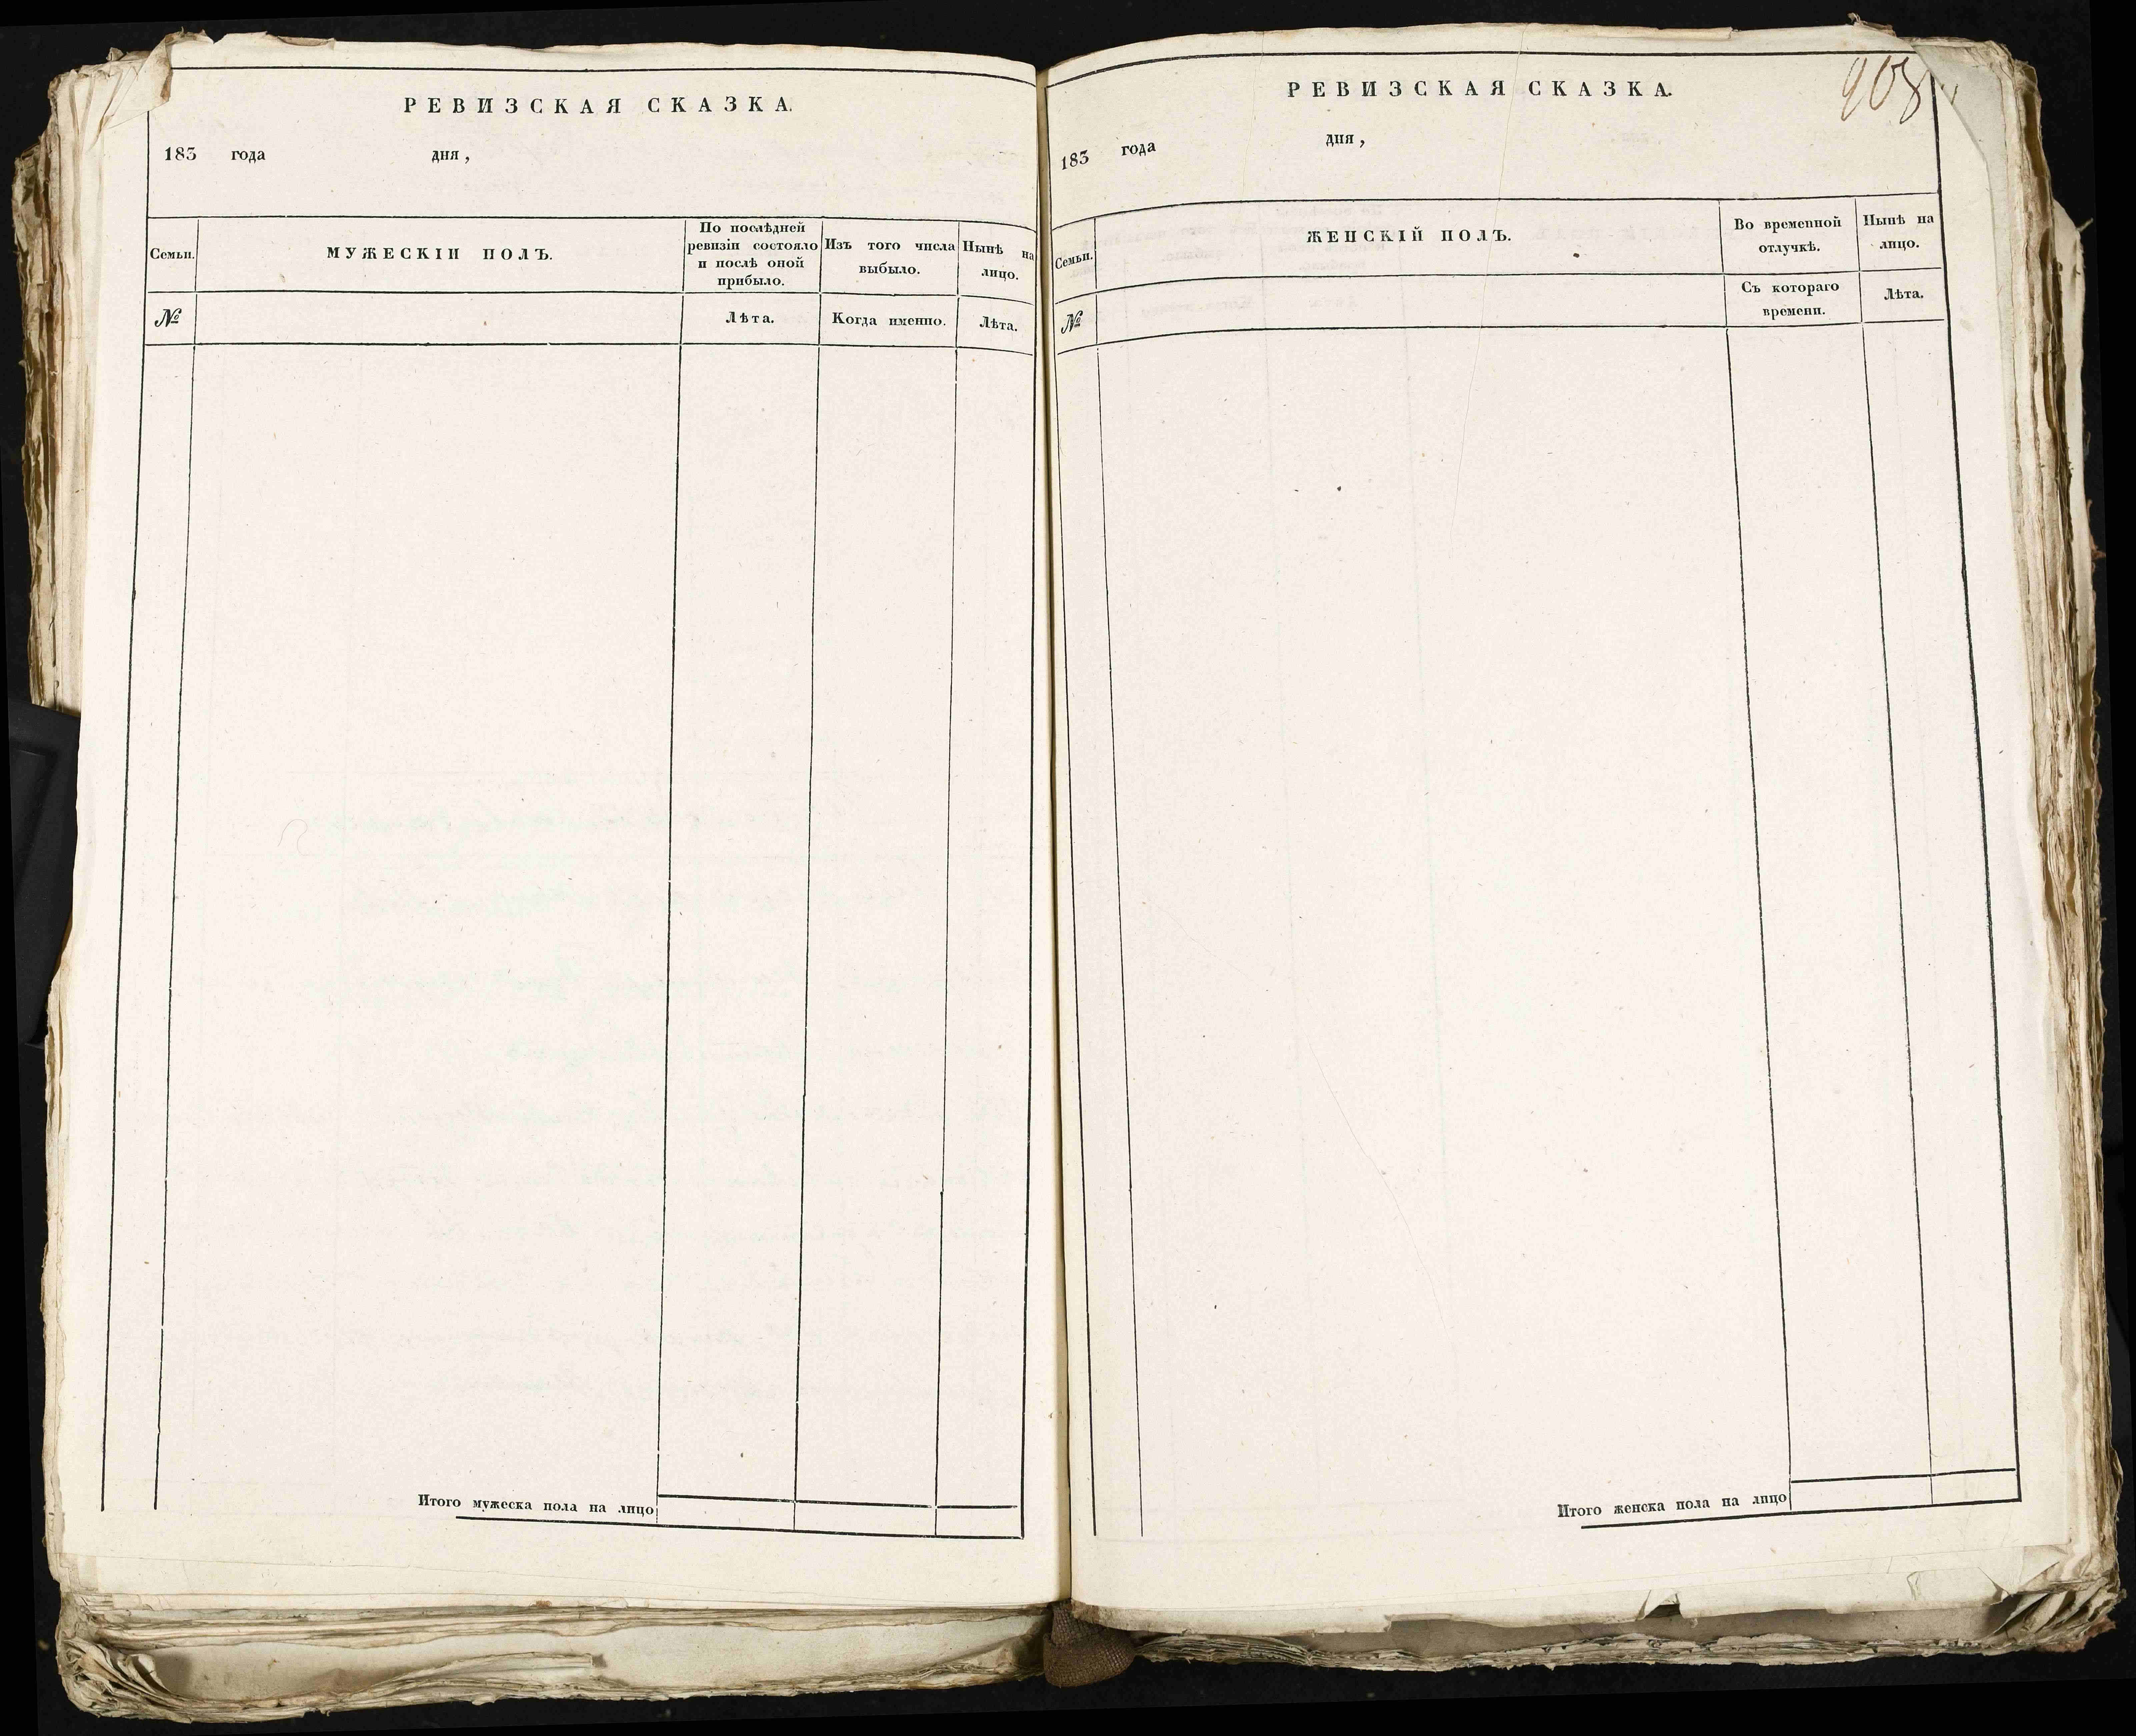 РЕВИЗСКАЯ СКАЗКА.
183 года дня,
Семьи.
МУЖЕСКІЙ ПОЛЪ.
По послѣдней
ревизіи состояло
и послѣ оной
прибыло.
Изъ того числа
выбыло.
Нынѣ на
лицо.
№
Лѣта.
Когда именно.
Лѣта.
Итого мужеска пола на лицо
908
РЕВИЗСКАЯ СКАЗКА.
183 года дня,
Семьи.
ЖЕНСКІЙ ПОЛЪ.
Во временной
отлучкѣ.
Нынѣ на
лицо.
№
Съ котораго
времени.
Лѣта.
Итого женска пола на лицо